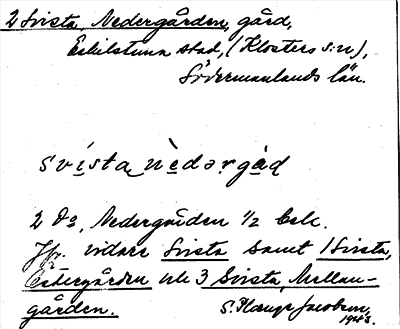 2 Svista, Nedergården, gård,
Eskilstuna stad, (Klosters s:n),
Södermanlands län.
svista nedərgåd
2 Do, Nedergården 1/2 
Jfr. vidare Svista samt 1 Svista,
Östergården och 3 Svista, Mellan-
gården.
S. Jacobson,